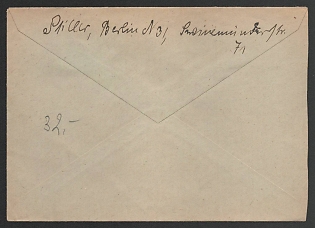 Stiller, Berlin N 31, Swinemünderstr.
71
32.-